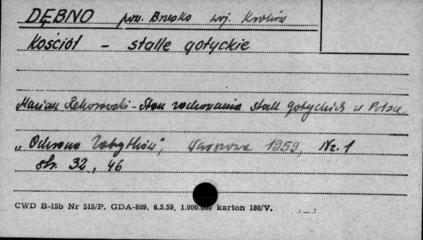 DĘBNO pow. Brzesko woj. Kraków
Kościół - stalle gotyckie
Marian Rehorowski - Stan zachowania stall gotyckich w Polsce
"Ochrona Zabytków", Warszawa 1959, Nr. 1
str. 32, 46
CWD B-15b Nr 515/P. GDA-809. 6.3.59. 1.000.000 karton 180/V.